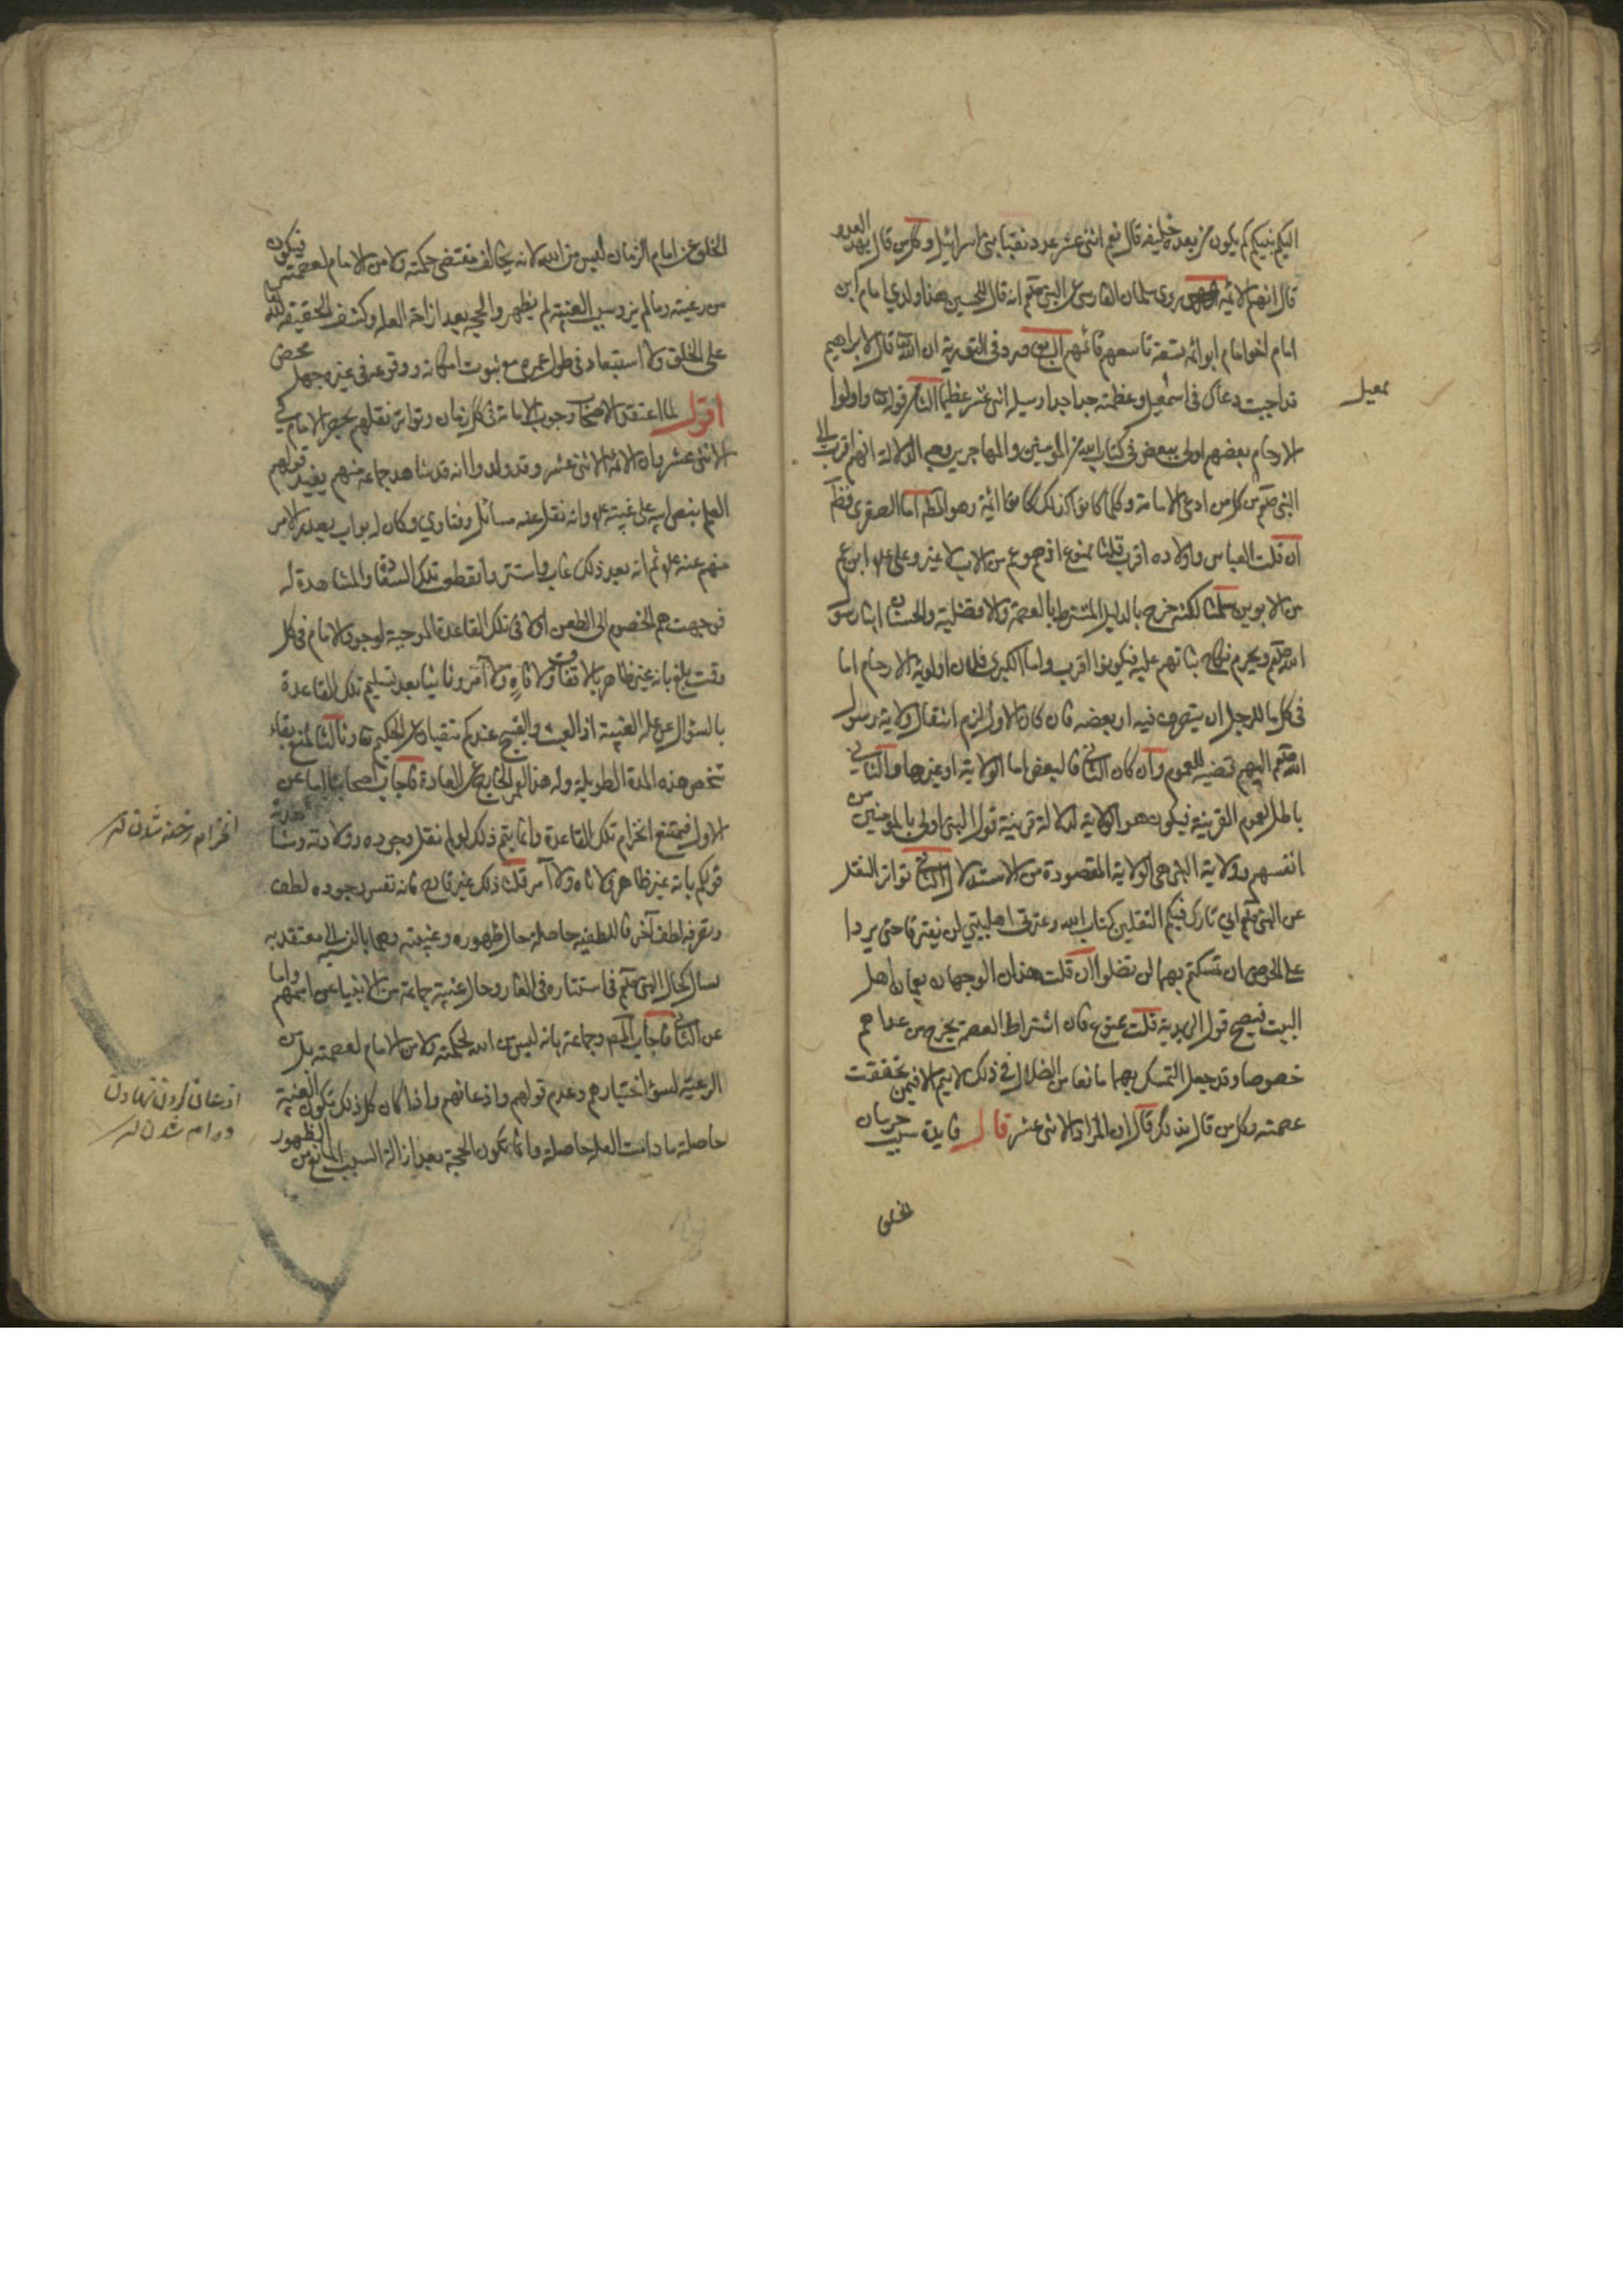 اليكم نبيكم كم يكون من بعده خليفه قال نعم اثنى عشر عدد نقبا بنى اسرائيل وكل من قال بهذا العدد
قال انهم الائمه روى سلمان الفارسى عن النبى صلعم انه قال للحسين هذا ولدي امام ابن
امام اخو امام ابو ائمة تسعة تاسعهم قائمهم ورد فى التورية ان الله تعا قال لابراهيم
قد اجبت دعاك فى اسمعيل وعظمته جدا جدا وسيلد اثنى عشر عظيما الثامن قوله تعا واولوا
معيل
الارحام بعضهم اولى ببعض فى كتاب الله من المؤمنين والمهاجرين وجه الدلالة انهم اقرب الى
النبى صلعم من كل من ادعى الامامة وكلما كانوا كذلك كانوا ائمة وهو المط اما الصغرى فظ
ان قلت العباس واولاده اقرب قلنا ممنوع اذ هو عم من الاب لا غير وعلى عليه ابن عم
من الابوين سلمنا لكنه خرج بالدليل المشترط بالعصمة والافضلية والحسنان ابنا رسول
الله صلعم ويحرم نكاح بناتهم عليه فيكونوا اقرب واما الكبرى فلان اولوية الارحام اما
فى كل ما للرجل ان يتصرف فيه او بعضه فان كان الاول لزم انتقال ولاية رسول
الله صلعم اليهم قضية للعموم وان كان الثانى فالبعض اما الولاية او غيرها والثانى
بالمل لعدم القرينة فيكون هو الولاية لدلالة قرينة قوله النبى اولى بالمؤمنين من
انفسهم وولاية النبى هى الولاية المقصودة من الاستدلال التاسع تواتر النقل
عن النبى صلعم انى تارك فيكم الثقلين كتاب الله وعترتى اهلبيتي لن يفترقا حتى يردا
على الحوض ان تمسكتم بهما لن تضلوا ان قلت هذان الوجهان يعمان اهل
البيت فيصح قول الزيدية قلت ممنوع فان اشتراط العصمة يخرج من عداهم
خصوصا وقد جعل التمسك بهما مانعا من الضلال وذلك لا يتم الا فيمن تحققت
عصمته وكل من قال بذلك قال ان المراد الاثنى عشر قال فايدة سبب حرمان
الخلق
الخلق عن امام الزمان ليس من الله لانه يخالف مقتضى حكمته ولا من الامام لعصمته فيكون
من رعيته وما لم يزل سبب الغيبة لم يظهر والحجة بعد ازاحة العلة وكشف الحقيقة لله تعا
على الخلق ولا استبعاد فى طول عمره مع ثبوت امكانه ووقوعه فى غيره جهل محض
اقول لما اعتقد الاصحاب وجوب الامامة فى كل زمان وتواتر نقلهم بحصر الامام فى
الاثنى عشر وبان الائمة الاثنى عشر وقد ولد وانه قد شاهد جماعة منهم يفيد قولهم
العلم بنص ابيه على غيبته عليه وانه نقل عنه مسائل وفتاوي وكان له بواب يصدر الامر
منهم عنه عليه ثم انه بعد ذلك غاب واستتر وانقطع تلك السفراء والمشاهدة له
فوجهت هم الخصوم الى الطعن اولا فى تلك القاعدة الموجبة لوجود الامام فى كل
وقت بانه غير ظاهر بالاتفاق ولا ناه ولا آمر وثانيا بعد تسليم تلك القاعدة
بالسؤال عن علة الغيبة اذ العبث والقبيح عندكم منفيان عن الحكيم تعا وثالثا لمنع بقاء
شخص هذه المدة الطويلة وله هذا العمر الخارج عن العادة فاجاب اصحابنا اما عن
الاول فيمتنع انخرام تلك القاعدة وانما يتم ذلك لو لم نقل وجوده وولادته ومشاهدته
انخرام رخنه شدن لر
قولكم بانه غير ظاهر ولا ناه ولا آمر قلت ذلك غير قادح فانه نفس وجوده لطف
وتصرفه لطف آخر فاللطفية حاصلة حال ظهوره وغيبته وهما بالنسبة الى معتقد به
لحال النبى صلعم فى استتاره فى الغار وحال غيبة جماعة من الانبياء عن اممهم واما
عن الثانى فاجاب المص وجماعة بانه ليس من الله لحكمته ولا من الامام لعصمته بل من
الرعية لسوء اختيارهم وعدم قولهم واذعانهم واذا كان كل ذلك تكون الغيبة
اذعان كردن نهادن
ورام شدن لر
حاصلة ما دامت العلة حاصلة وانما تكون الحجة بعد ازالة السبب المانع من الظهور